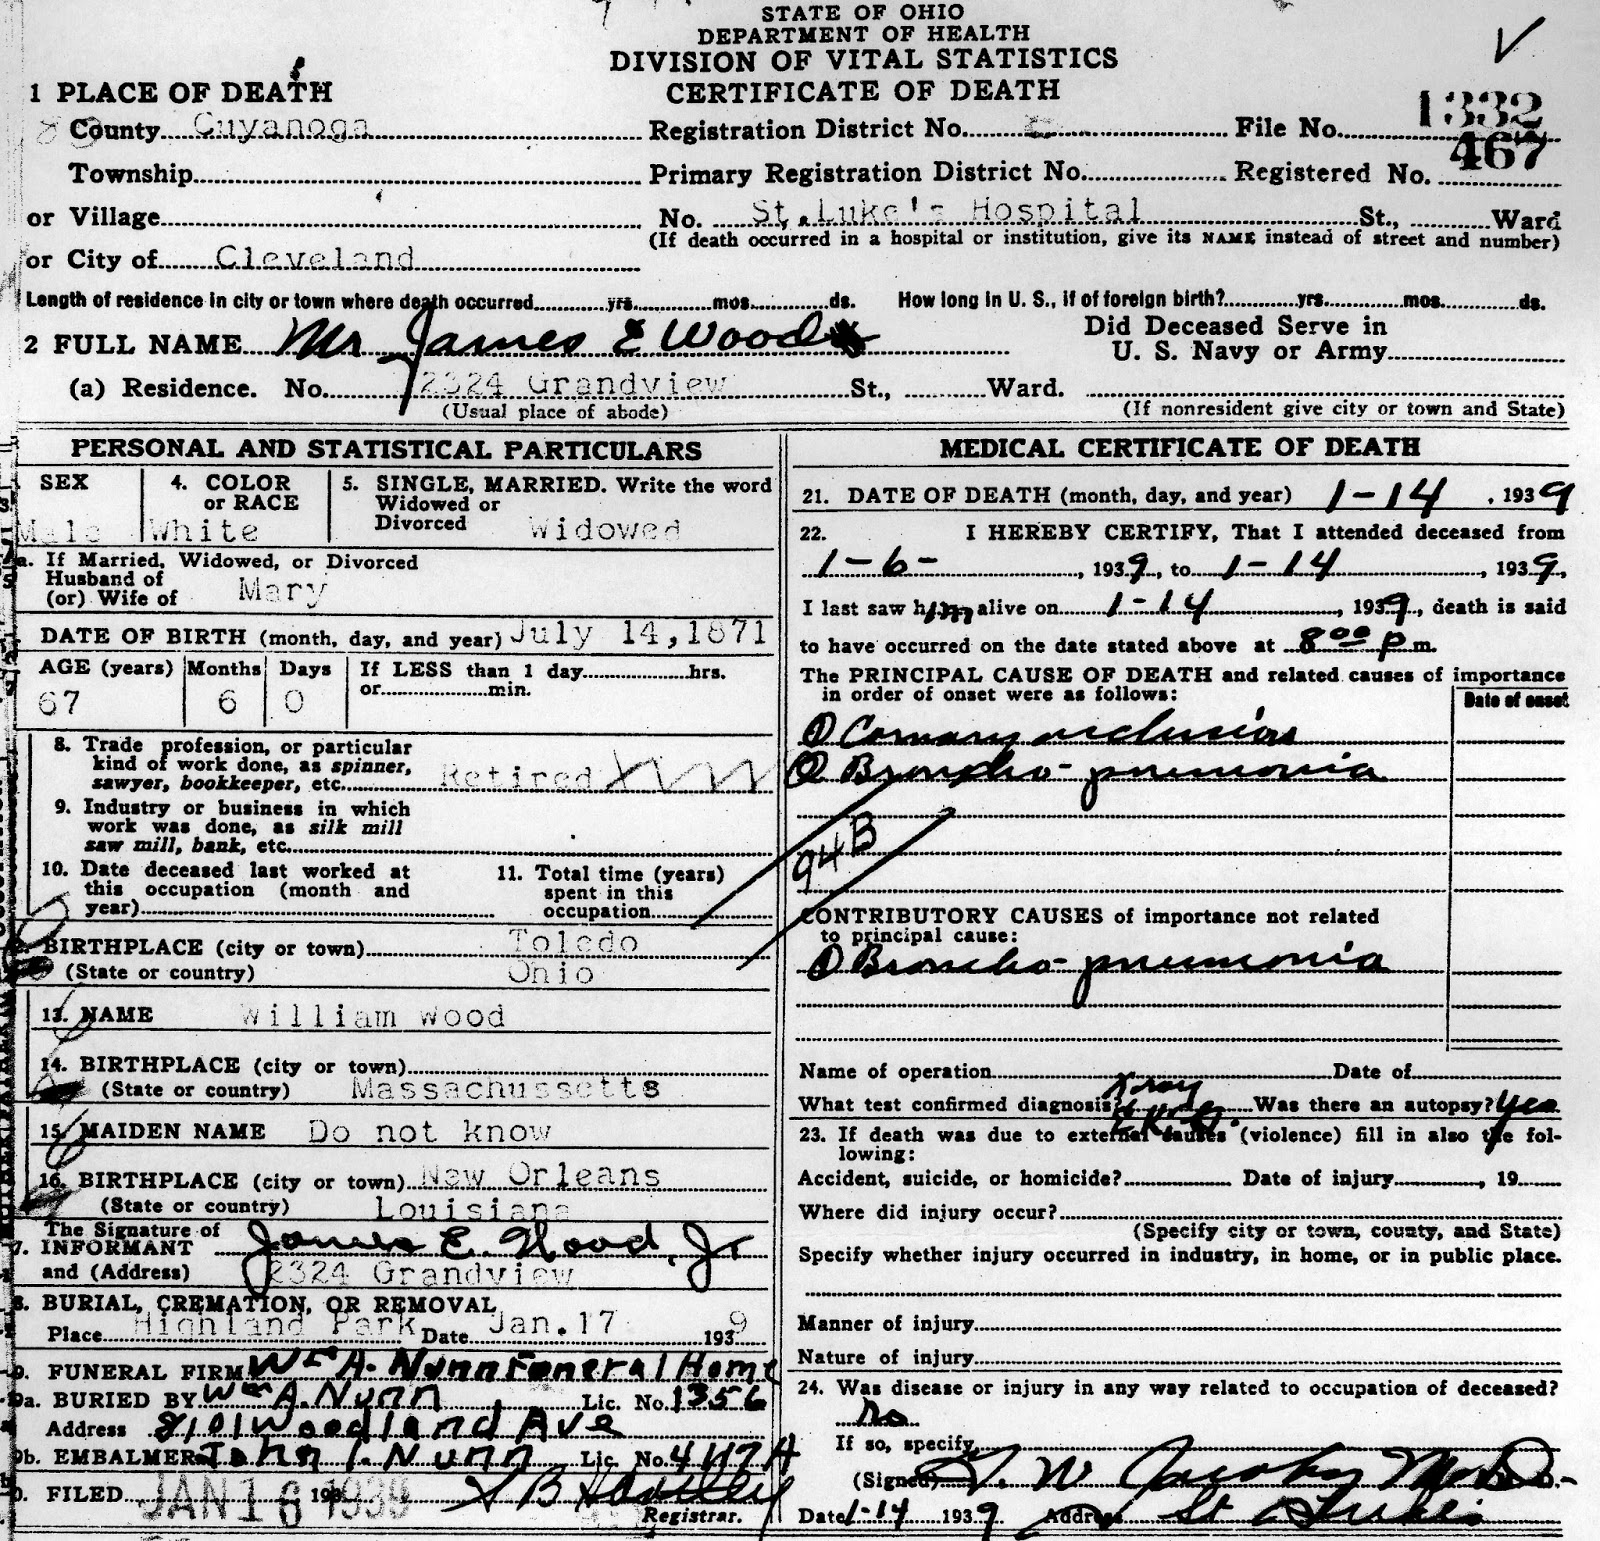 STATE OF OHIO
DEPARTMENT OF HEALTH
DIVISION OF VITAL STATISTICS
CERTIFICATE OF DEATH
1 PLACE OF DEATH
County Cuyahoga Registration District No. File No. 1332
467
Township Primary Registration District No. Registered No.
or Village No. St. Luke's Hospital St., Ward
(If death occurred in a hospital or institution, give its NAME instead of street and number)
or City of Cleveland
Length of residence in city or town where death occurred yrs. mos. ds. How long in U. S., if of foreign birth? yrs. mos. ds.
2 FULL NAME Mr James E Wood Did Deceased Serve in
U. S. Navy or Army
(a) Residence. No. 2324 Grandview St., Ward.
(Usual place of abode) (If nonresident give city or town and State)
PERSONAL AND STATISTICAL PARTICULARS
SEX 4. COLOR or RACE 5. SINGLE, MARRIED. Write the word
Widowed or
Divorced
Male White Widowed
a. If Married, Widowed, or Divorced
Husband of
(or) Wife of Mary
DATE OF BIRTH (month, day, and year) July 14, 1871
AGE (years) Months Days If LESS than 1 day hrs.
or min.
67 6 0
8. Trade profession, or particular
kind of work done, as spinner,
sawyer, bookkeeper, etc. Retired
9. Industry or business in which
work was done, as silk mill
saw mill, bank, etc.
10. Date deceased last worked at
this occupation (month and
year)
11. Total time (years)
spent in this
occupation
BIRTHPLACE (city or town) Toledo
(State or country) Ohio
13. NAME William Wood
14. BIRTHPLACE (city or town)
(State or country) Massachussetts
15. MAIDEN NAME Do not know
16. BIRTHPLACE (city or town) New Orleans
(State or country) Louisiana
The Signature of
7. INFORMANT James E. Wood, Jr
and (Address) 2324 Grandview
8. BURIAL, CREMATION, OR REMOVAL
Place Highland Park Date Jan. 17 1939
9. FUNERAL FIRM Wm A. Nunn Funeral Home
9a. BURIED BY Wm A. Nunn Lic. No. 1356
Address 8101 Woodland Ave
9b. EMBALMER John I. Nunn Lic. No. 4117A
0. FILED JAN 16 1939
Registrar.
MEDICAL CERTIFICATE OF DEATH
21. DATE OF DEATH (month, day, and year) 1-14, 1939
22. I HEREBY CERTIFY, That I attended deceased from
1-6-, 1939, to 1-14, 1939,
I last saw him alive on 1-14, 1939, death is said
to have occurred on the date stated above at 8 00 p m.
The PRINCIPAL CAUSE OF DEATH and related causes of importance
in order of onset were as follows:
Date of onset
① Coronary occlusion
② Broncho-pneumonia
94B
CONTRIBUTORY CAUSES of importance not related
to principal cause:
① Broncho-pneumonia
Name of operation Date of
What test confirmed diagnosis? X-ray E.K.G. Was there an autopsy? yes
23. If death was due to external causes (violence) fill in also the fol-
lowing:
Accident, suicide, or homicide? Date of injury, 19
Where did injury occur?
(Specify city or town, county, and State)
Specify whether injury occurred in industry, in home, or in public place.
Manner of injury
Nature of injury
24. Was disease or injury in any way related to occupation of deceased?
no
If so, specify
(Signed) W Jacoby M.D.
Date 1-14 1939 Address St Lukes